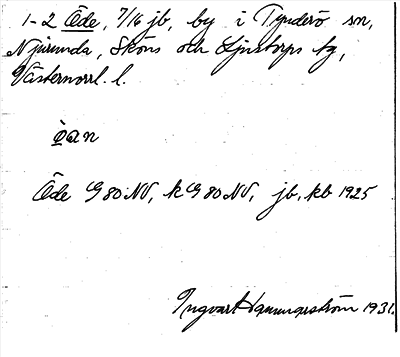 1-2 Öde, 7/16 jb, by i Tynderö sn,
Njurunda, Sköns och Ljustorps tg,
Västernorrl. l.
ò̱an
Öde G 80 NV, k G 80 NV, jb, kb 1925
Ingvart Hammarström 1931.